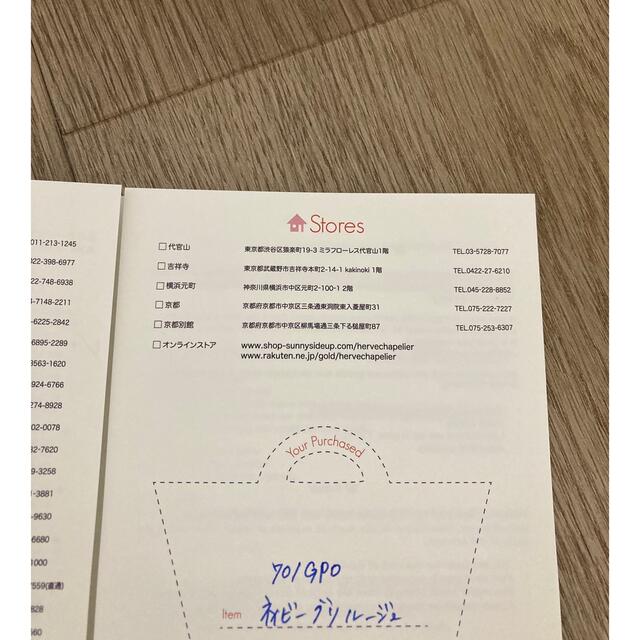 011-213-1245
022-398-6977
022-748-6938
3-7148-2211
-6225-2842
6895-2289
3563-1620
-6924-6766
-274-8928
02-0078
32-7620
9-3258
1-3881
-9630
-6680
1000
7559(直通)
828
560
Stores
□代官山 東京都渋谷区猿楽町19-3 ミラフローレス代官山1階 TEL.03-5728-7077
□吉祥寺 東京都武蔵野市吉祥寺本町2-14-1 kakinoki 1階 TEL.0422-27-6210
□横浜元町 神奈川県横浜市中区元町2-100-1 2階 TEL.045-228-8852
□京都 京都府京都市中京区三条通東洞院東入菱屋町31 TEL.075-222-7227
□京都別館 京都府京都市中京区柳馬場通三条下る槌屋町87 TEL.075-253-6307
□オンラインストア www.shop-sunnysideup.com/hervechapelier
www.rakuten.ne.jp/gold/hervechapelier
Your Purchased
701GPO
Item ネイビーグリ ルージュ